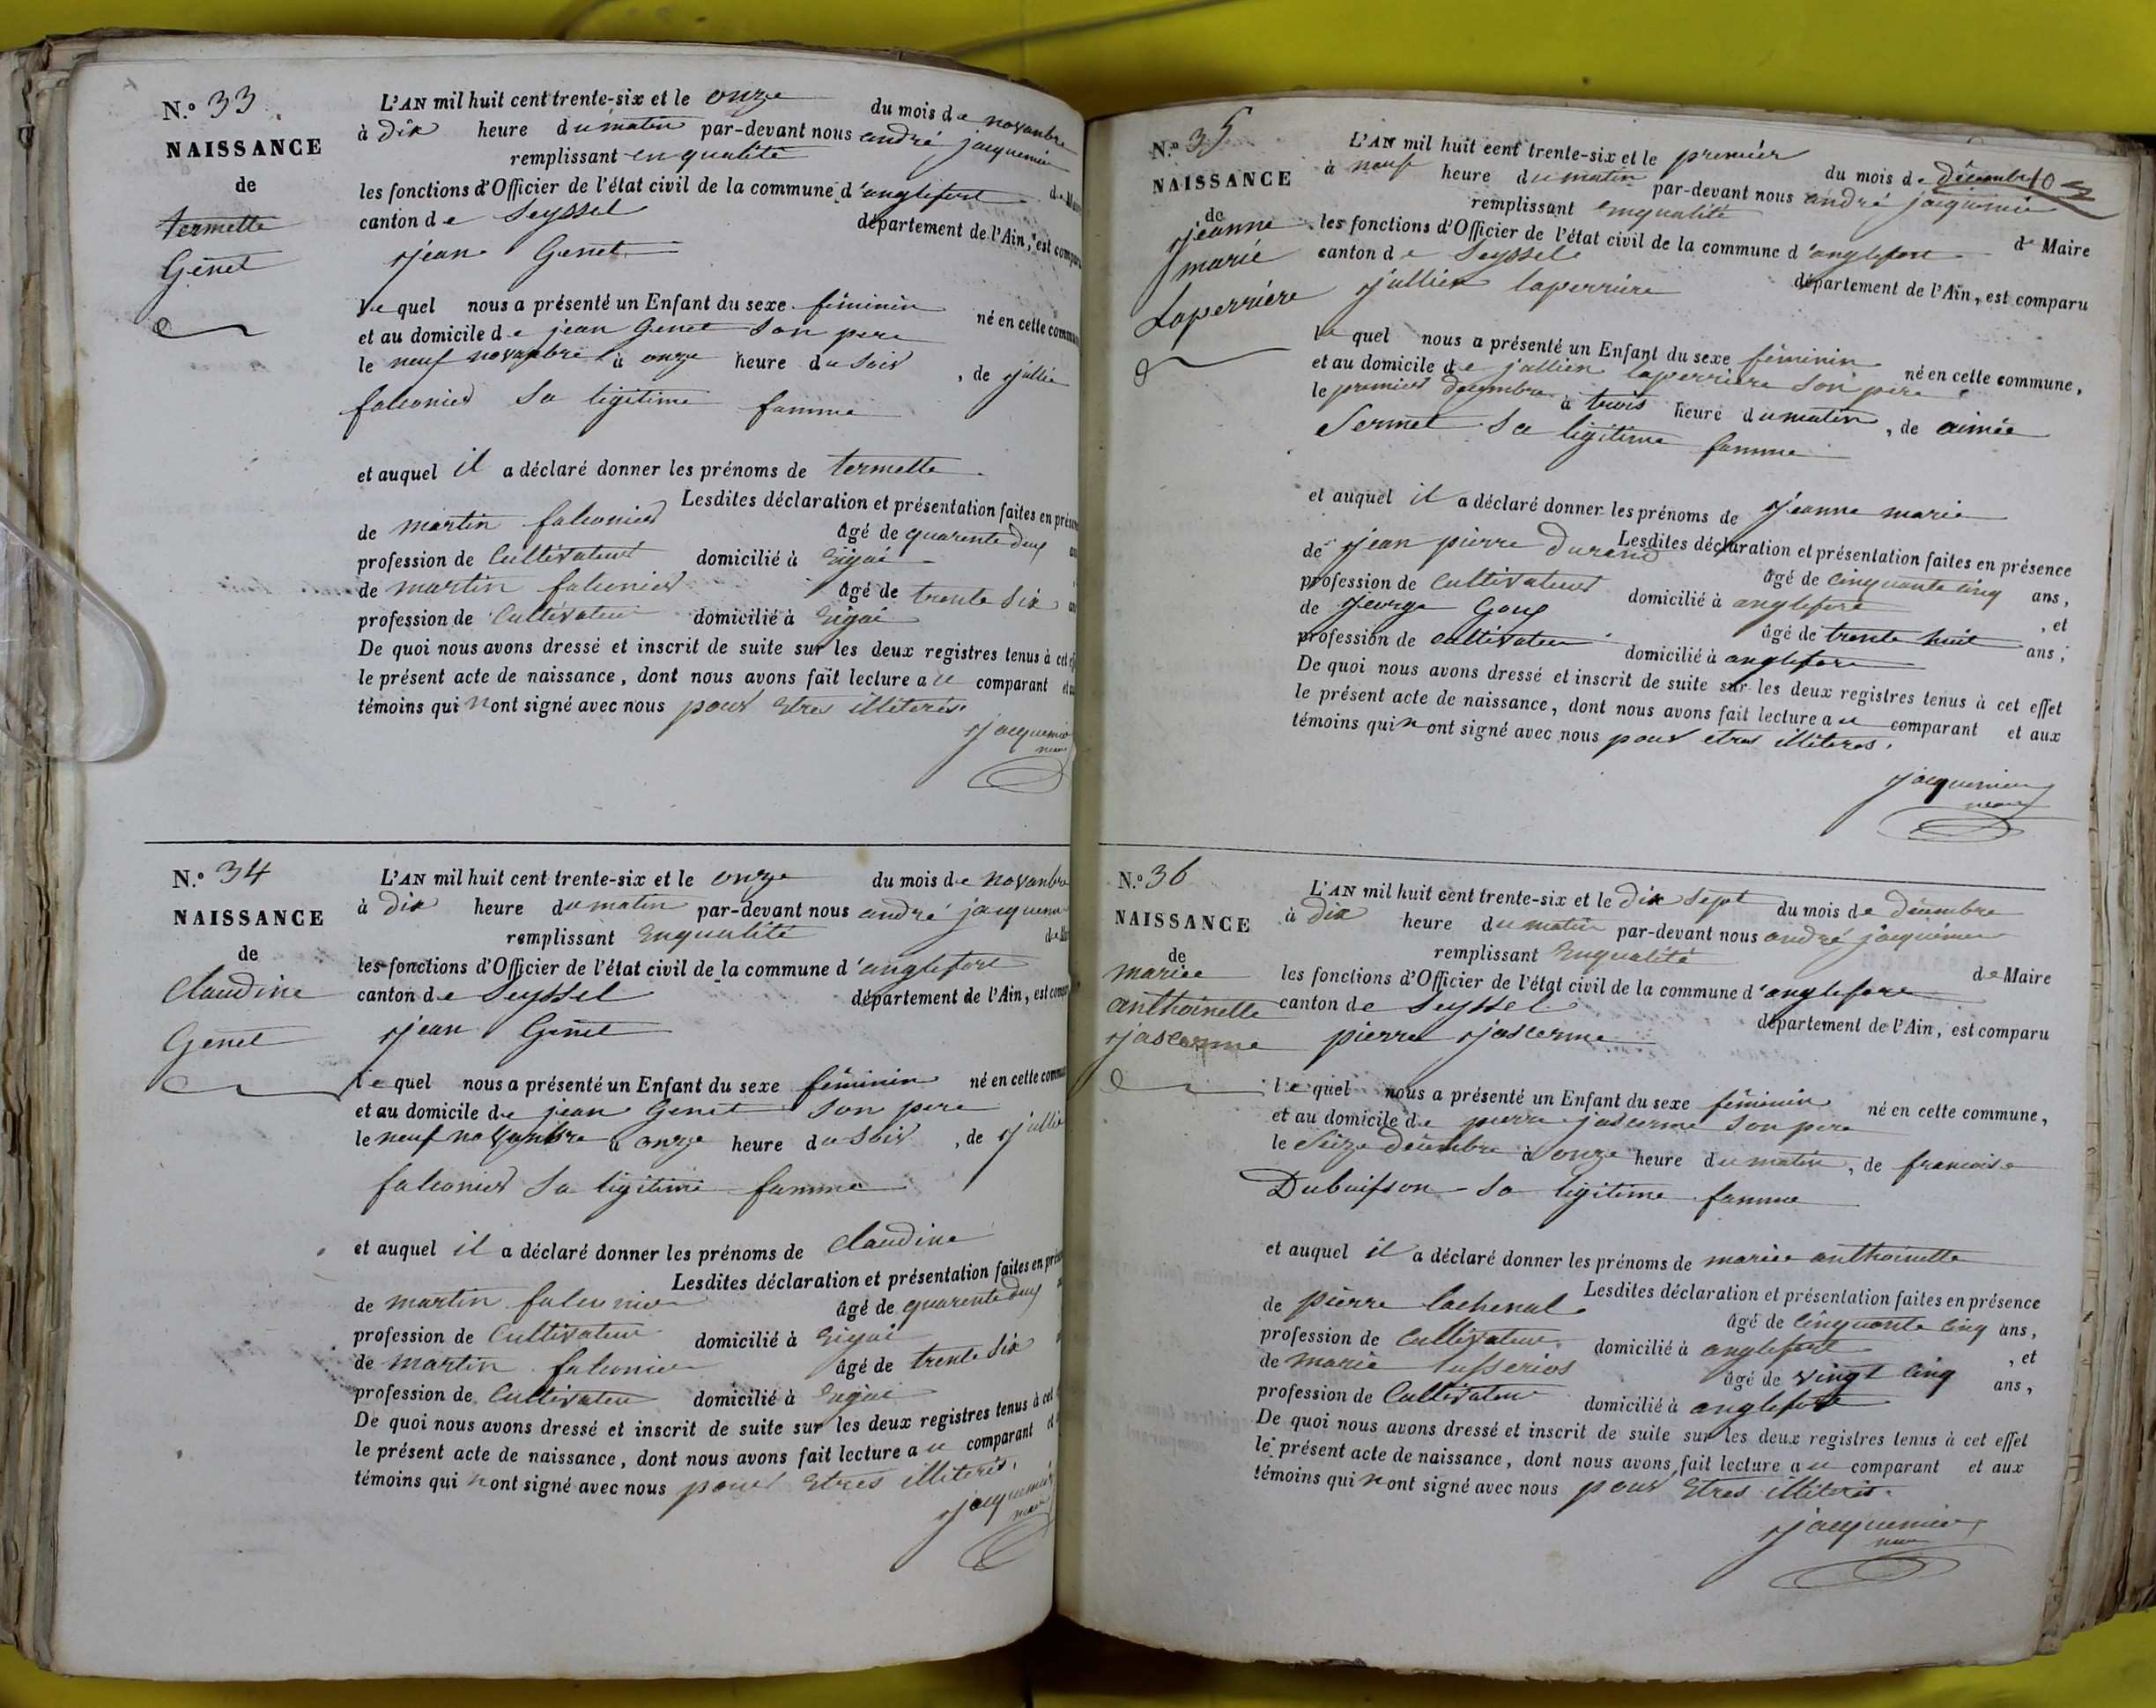 N.º 33
NAISSANCE
de
termette
Genet
L'AN mil huit cent trente-six et le onze du mois de novanbre
à dix heure du matin par-devant nous andré jacquemier
remplissant en qualité de Maire
les fonctions d'Officier de l'état civil de la commune d'anglefort
canton de Seyssel département de l'Ain, est comparu
jean Genet
le quel nous a présenté un Enfant du sexe féminin né en cette commune
et au domicile de jean Genet son pere
le neuf novanbre à onze heure du soir, de jullie
falconier sa ligitime famme
et auquel il a déclaré donner les prénoms de termette
Lesdites déclaration et présentation faites en présence
de martin falconier âgé de quarente deux
profession de Cultivateur domicilié à
de martin falconier âgé de trente six
profession de Cultivateur domicilié à
De quoi nous avons dressé et inscrit de suite sur les deux registres tenus à cet
le présent acte de naissance, dont nous avons fait lecture au comparant et
témoins qui n'ont signé avec nous pour Etres illiterés.
jacquemier
maire
N.º 34
NAISSANCE
de
Claudine
Genet
L'AN mil huit cent trente-six et le onze du mois de novanbre
à dix heure du matin par-devant nous andré jacquemier
remplissant Enqualité de
les fonctions d'Officier de l'état civil de la commune d'anglefort
canton de Seyssel département de l'Ain, est comparu
jean Genet
le quel nous a présenté un Enfant du sexe féminin né en cette commune
et au domicile de jean Genet son pere
le neuf novanbre à onze heure du soir, de jullie
falconier sa ligitime famme
et auquel il a déclaré donner les prénoms de Claudine
Lesdites déclaration et présentation faites en présence
de martin falconier âgé de quarente deux
profession de Cultivateur domicilié à
de martin falconier âgé de trente six
profession de Cultivateur domicilié à
De quoi nous avons dressé et inscrit de suite sur les deux registres tenus à cet
le présent acte de naissance, dont nous avons fait lecture au comparant et
témoins qui n'ont signé avec nous pour Etres illiterés.
jacquemier
maire
N.º 35
NAISSANCE
de
jeanne
marie
Laperrière
L'AN mil huit cent trente-six et le premier du mois de décembre
à neuf heure du matin par-devant nous andré jacquemier
remplissant enqualité de Maire
les fonctions d'Officier de l'état civil de la commune d'anglefort
canton de Seyssel département de l'Ain, est comparu
jullien laperriere
le quel nous a présenté un Enfant du sexe féminin né en cette commune,
et au domicile de jullien laperriere son pere
le premier decembre à trois heure du matin, de aimée
Sermet sa ligitime famme
et auquel il a déclaré donner les prénoms de jeanne marie
Lesdites déclaration et présentation faites en présence
de jean pierre durand âgé de cinquante cinq ans,
profession de cultivateur domicilié à anglefort, et
de jeorge Goux âgé de trente huit ans,
profession de cultivateur domicilié à anglefort
De quoi nous avons dressé et inscrit de suite sur les deux registres tenus à cet effet
le présent acte de naissance, dont nous avons fait lecture au comparant et aux
témoins qui n'ont signé avec nous pour etres illiterés.
jacquemier
maire
N.º 36
NAISSANCE
de
mariee
anthoinette
jascerme
L'AN mil huit cent trente-six et le dix sept du mois de décembre
à dix heure du matin par-devant nous andré jacquemier
remplissant Enqualité de Maire
les fonctions d'Officier de l'état civil de la commune d'anglefort
canton de Seyssel département de l'Ain, est comparu
pierre jascerme
le quel nous a présenté un Enfant du sexe féminin né en cette commune,
et au domicile de pierre jascerme son pere
le Seize décembre à onze heure du matin, de francoise
Dubuisson sa ligitime famme
et auquel il a déclaré donner les prénoms de mariee anthoinette
Lesdites déclaration et présentation faites en présence
de pierre lachenal âgé de cinquante cinq ans,
profession de Cultivateur domicilié à anglefort, et
de marie âgé de vingt cinq ans,
profession de Cultivateur domicilié à anglefort
De quoi nous avons dressé et inscrit de suite sur les deux registres tenus à cet effet
le présent acte de naissance, dont nous avons fait lecture au comparant et aux
témoins qui n'ont signé avec nous pour Etres illiterés.
jacquemier
maire